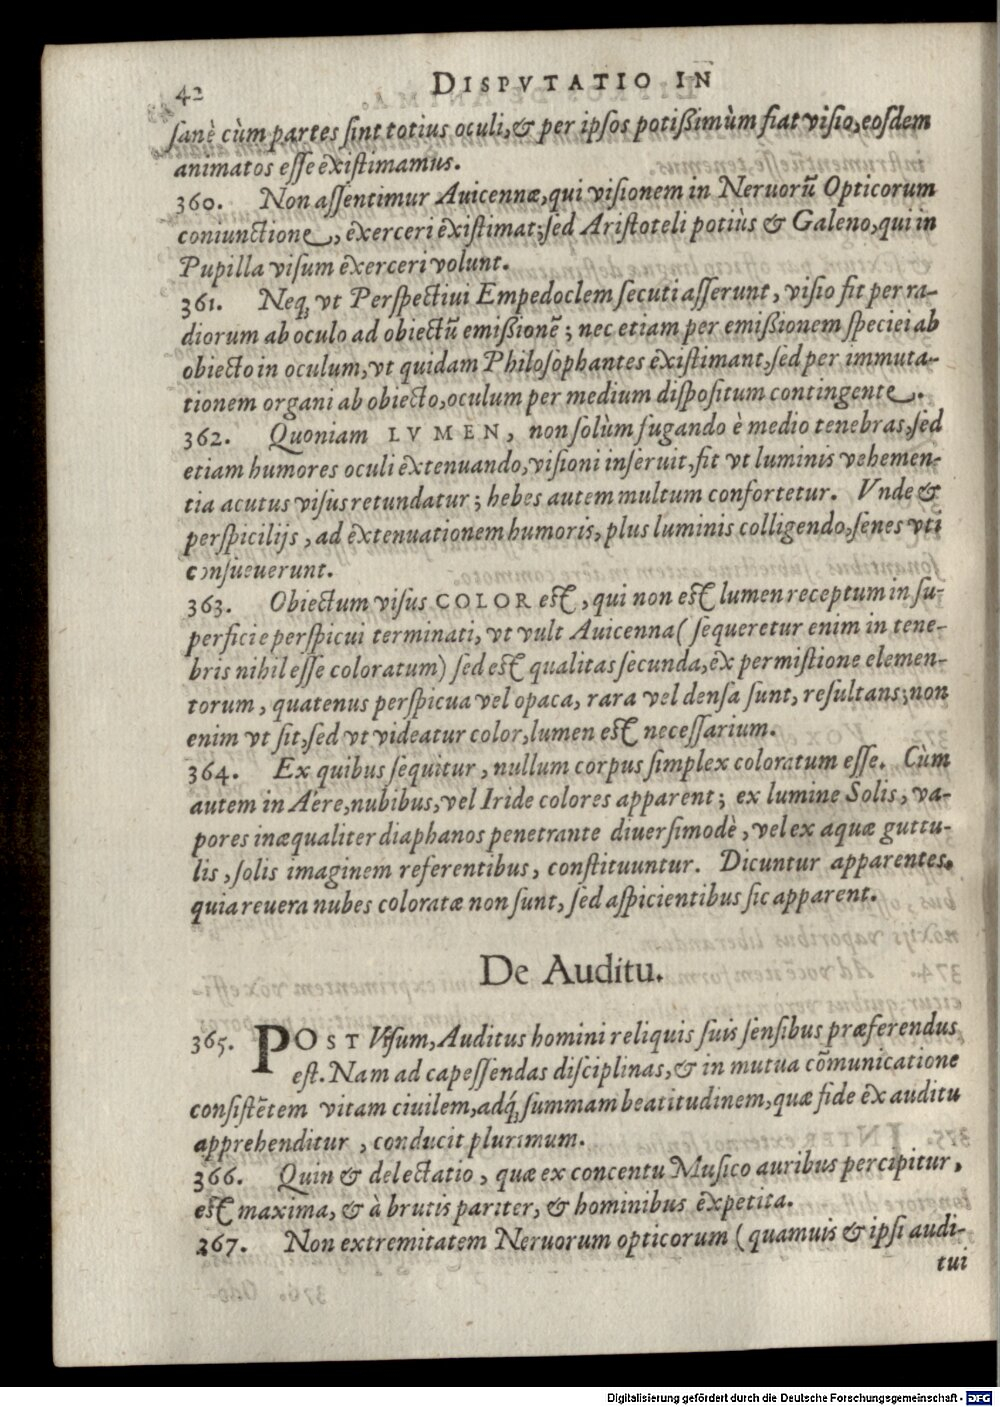 42 DISPVTATIO IN
ſanè cùm partes ſint totius oculi, & per ipſos potißimùm fiat viſio, eoſdem
animatos eſſe exiſtimamus.
360. Non aſſentimur Auicennæ, qui viſionem in Neruorũ Opticorum
coniunctione, exerceri exiſtimat; ſed Ariſtoteli potiùs & Galeno, qui in
Pupilla viſum exerceri volunt.
361. Neq́; vt Perſpectiui Empedoclem ſecuti aſſerunt, viſio fit per ra-
diorum ab oculo ad obiectũ emißionẽ; nec etiam per emißionem ſpeciei ab
obiecto in oculum, vt quidam Philoſophantes exiſtimant, ſed per immuta-
tionem organi ab obiecto, oculum per medium diſpoſitum contingente.
362. Quoniam LVMEN, non ſolùm fugando è medio tenebras, ſed
etiam humores oculi extenuando, viſioni inſeruit, fit vt luminis vehemen-
tia acutus viſus retundatur; hebes autem multum confortetur. Vnde &
perſpicilijs, ad extenuationem humoris, plus luminis colligendo, ſenes vti
conſueuerunt.
363. Obiectum viſus COLOR eſt, qui non eſt lumen receptum in ſu-
perficie perſpicui terminati, vt vult Auicenna (ſequeretur enim in tene-
bris nihil eſſe coloratum) ſed eſt qualitas ſecunda, ex permiſtione elemen-
torum, quatenus perſpicua vel opaca, rara vel denſa ſunt, reſultans; non
enim vt ſit, ſed vt videatur color, lumen eſt neceſſarium.
364. Ex quibus ſequitur, nullum corpus ſimplex coloratum eſſe. Cùm
autem in Aëre, nubibus, vel Iride colores apparent; ex lumine Solis, va-
pores inæqualiter diaphanos penetrante diuerſimodè, vel ex aquæ guttu-
lis, ſolis imaginem referentibus, conſtituuntur. Dicuntur apparentes.
quia reuera nubes coloratæ non ſunt, ſed aſpicientibus ſic apparent.
De Auditu.
365. POST Viſum, Auditus homini reliquis ſuis ſenſibus præferendus
eſt. Nam ad capeſſendas diſciplinas, & in mutua cõmunicatione
conſiſtẽtem vitam ciuilem, adq́; ſummam beatitudinem, quæ fide ex auditu
apprehenditur, conducit plurimum.
366. Quin & delectatio, quæ ex concentu Muſico auribus percipitur,
eſt maxima, & à brutis pariter, & hominibus expetita.
367. Non extremitatem Neruorum opticorum (quamuis & ipſi audi-
tui
Digitalisierung gefördert durch die Deutsche Forschungsgemeinschaft - DFG